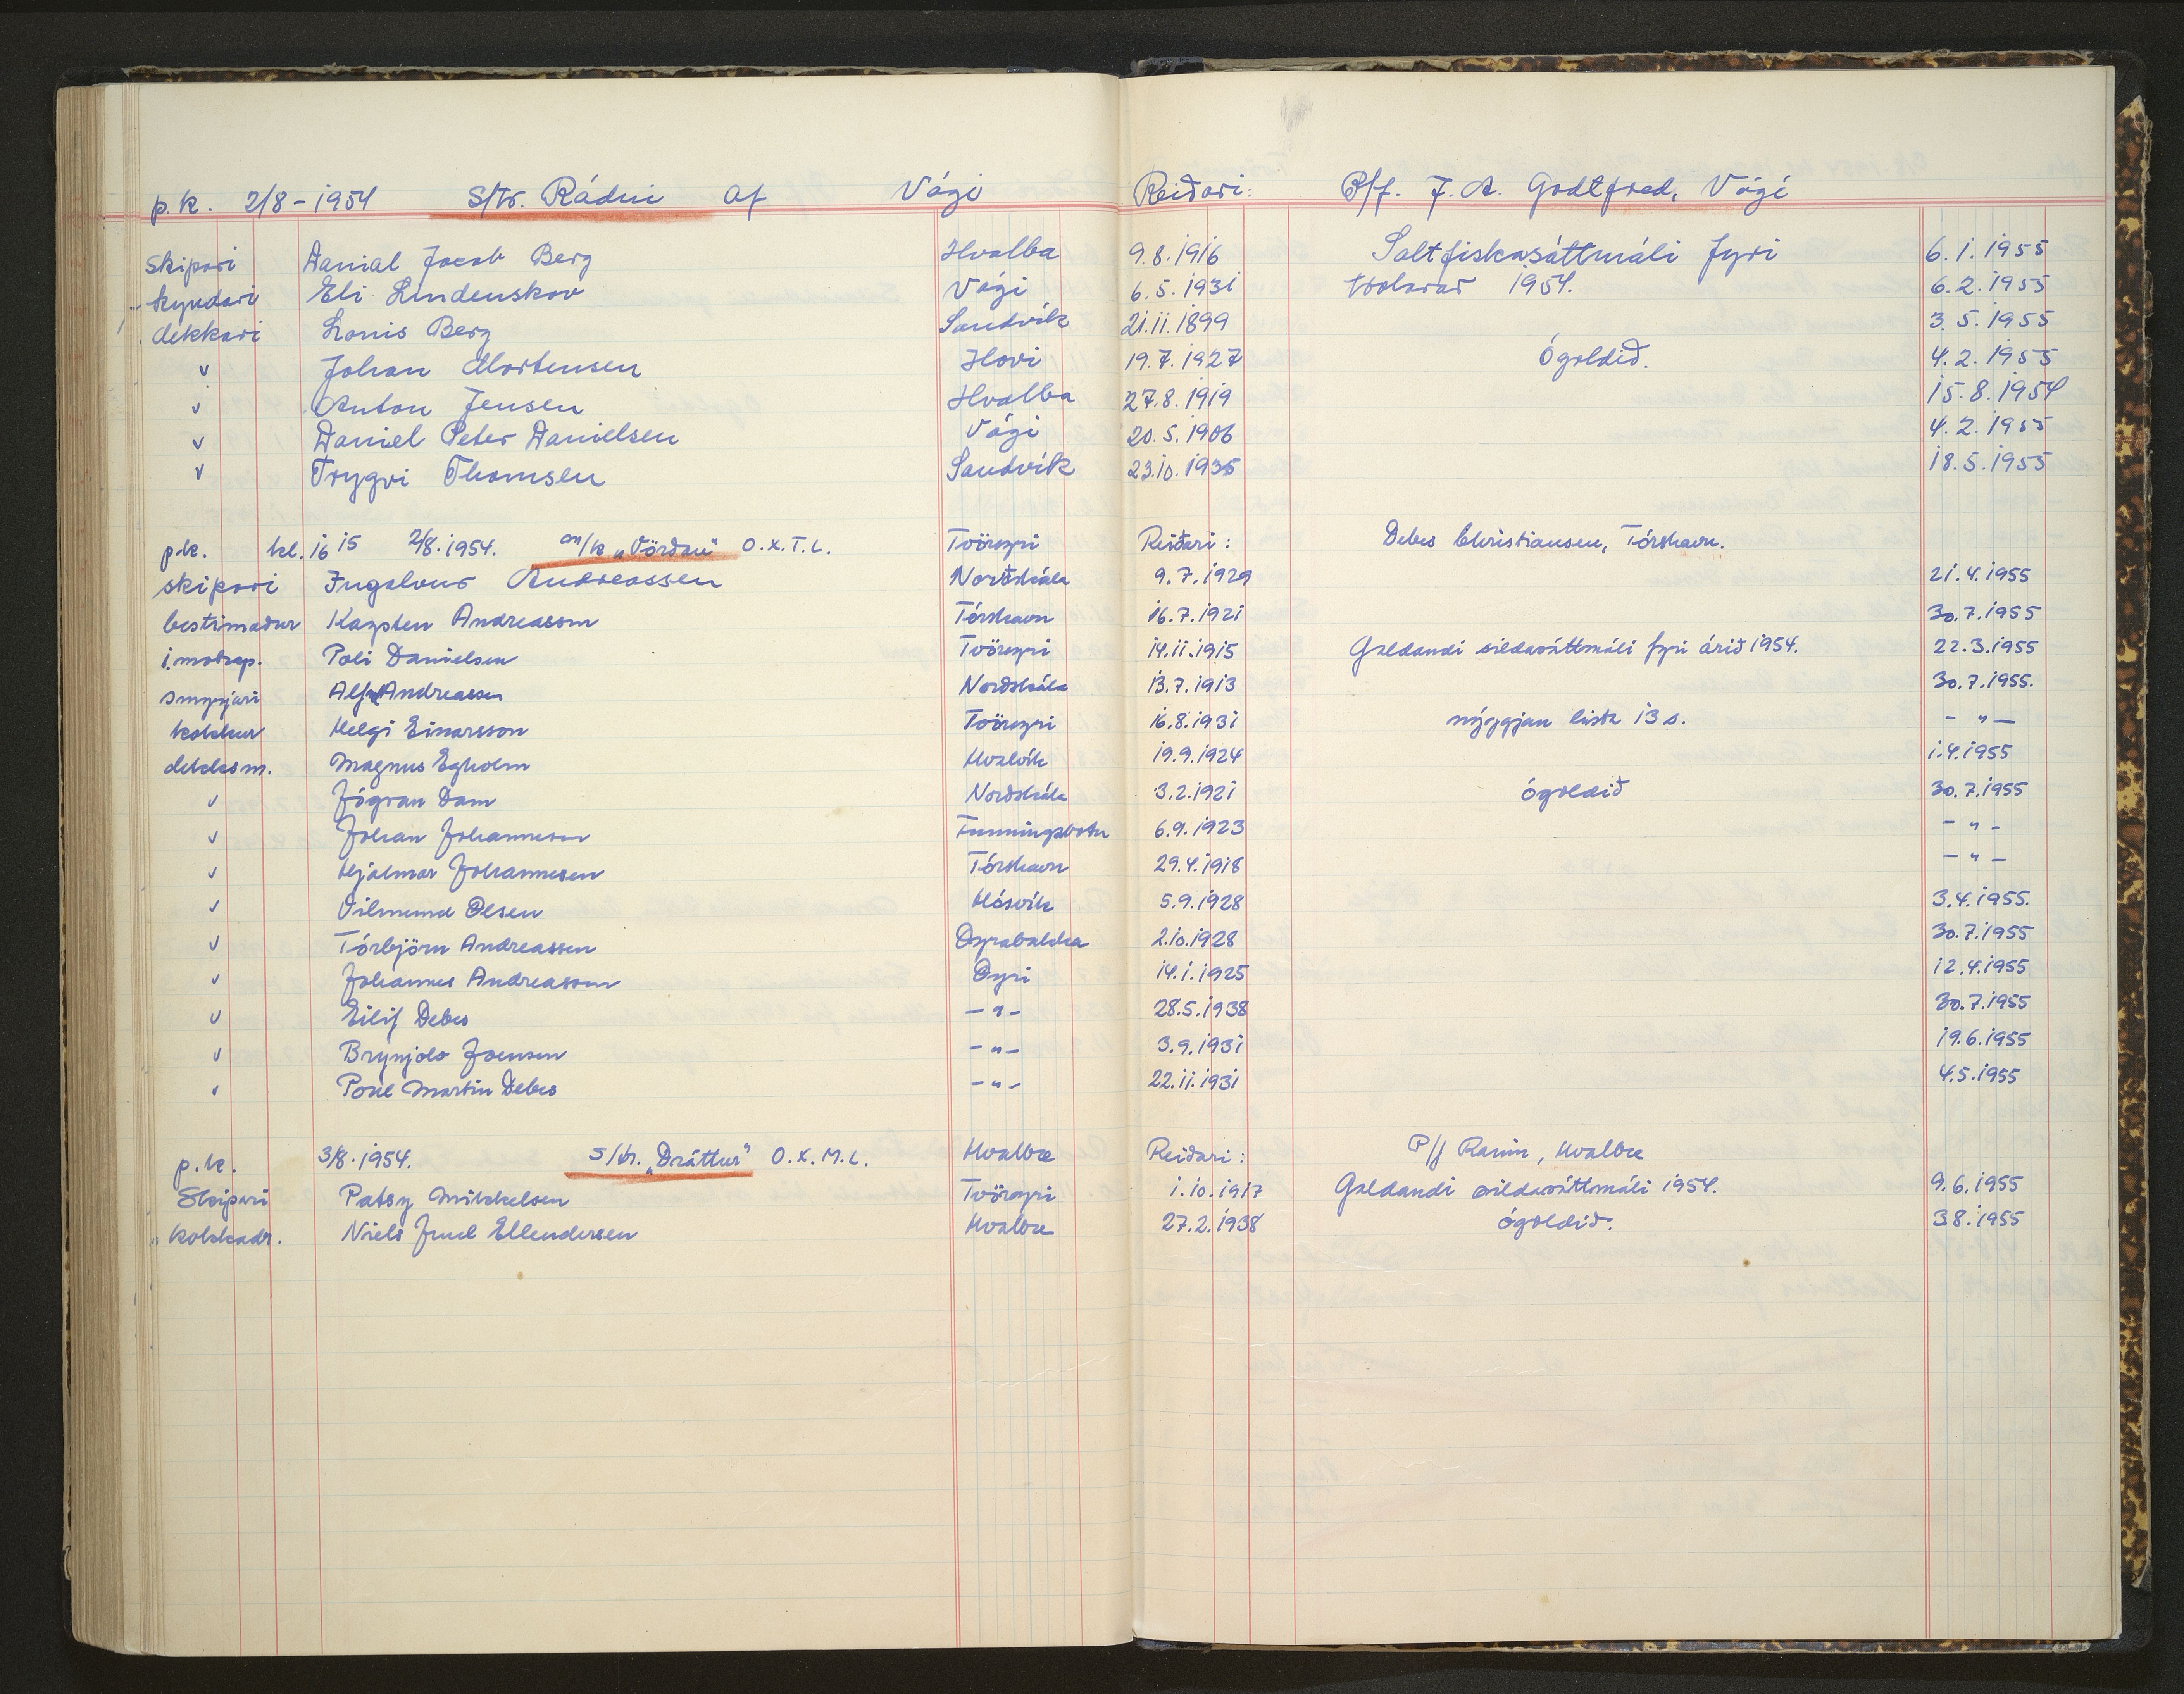 p.k. 2/8-1954 S/tr. Rádni af Vági Reiðari: P/f. F. A. Godtfred, Vági
Skipari Danial Jacob Berg Hvalba 9.8.1916 Saltfiskasáttmáli fyri 6.1.1955
kyndari Eli Lindenskov Vági 6.5.1931 trolarar 1954. 6.2.1955
dekkari Louis Berg Sandvík 21.11.1899 3.5.1955
v Johan Mortensen Hovi 19.7.1927 Ógoldið. 4.2.1955
v Anton Jensen Hvalba 27.8.1919 15.8.1954
v Daniel Peter Danielsen Vági 20.5.1906 4.2.1955
v Trygvi Thomsen Sandvík 23.10.1935 18.5.1955
p.k. kl. 16 15 2/8.1954. m/k „Vørdan" O.X.T.L. Tvöroyri Reiðari: Debes Christiansen, Tórshavn.
skipari Ingalvur Andreassen Norðskála 9.7.1929 21.4.1955
bestimaður Karsten Andreassen Tórshavn 16.7.1921 30.7.1955
1. motorp. Poli Danielsen Tvöroyri 14.11.1915 Galdandi sildasáttmáli fyri árið 1954. 22.3.1955
smyrjari Alf Andreassen Norðskála 13.7.1913 30.7.1955.
kokkur Helgi Einarsson Tvöroyri 16.8.1931 nýggjan lista 13 s. - " -
dekksm. Magnus Egholm Hvalvík 19.9.1924 1.4.1955
v Jógvan Dam Norðskála 3.2.1921 ógoldið 30.7.1955
v Johan Johannesen Funningsbotn 6.9.1923 - " -
v Hjalmar Johannesen Tórshavn 29.4.1918 - " -
v Vilmund Olsen Hósvík 5.9.1928 3.4.1955.
v Tórbjörn Andreassen Oyrabakka 2.10.1928 30.7.1955
v Johannes Andreassen Oyri 14.1.1925 12.4.1955
v Eilif Debes - " - 28.5.1938 30.7.1955
v Brynjolv Joensen - " - 3.9.1931 19.6.1955
v Poul Martin Debes - " - 22.11.1931 4.5.1955
p.k. 3/8.1954. S/tr. „Dráttur" O.X.M.L. Hvalba Reiðari: P/f Ranin, Hvalba
Skipari Patsy Mikkelsen Tvöroyri 1.10.1917 Galdandi sildasáttmáli 1954. 9.6.1955
kokkadr. Niels Juul Ellendersen Hvalba 27.2.1938 ógoldið. 3.8.1955